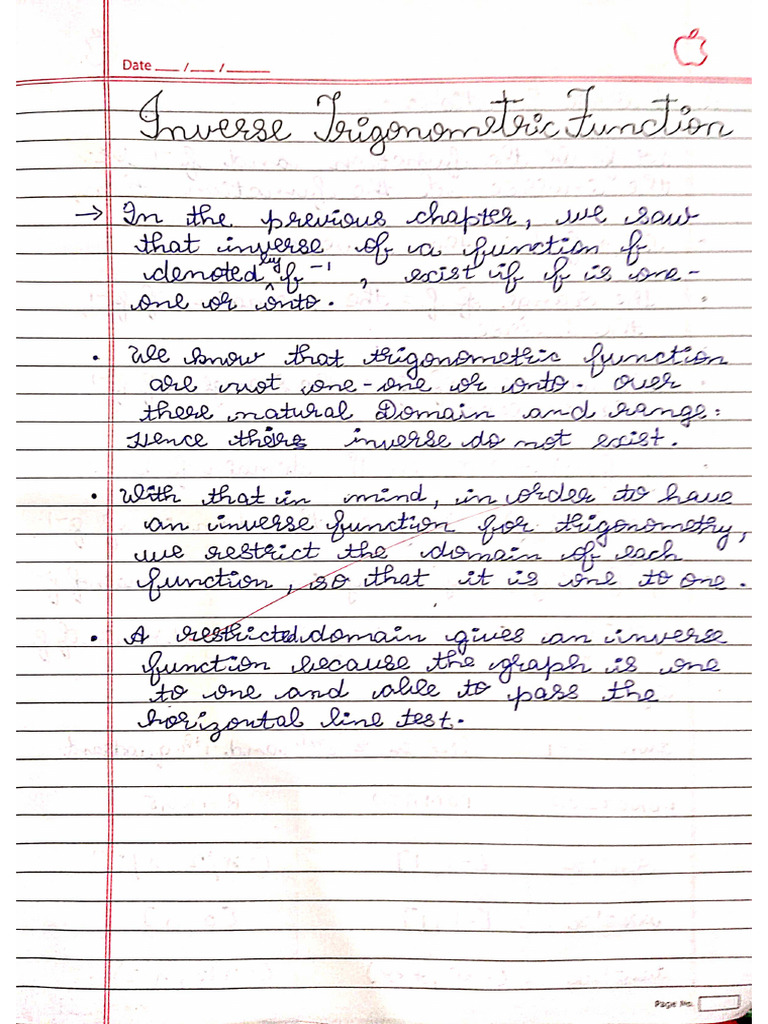 Date ___ / ___ / _____
Inverse Trigonometric Function
→ In the previous chapter, we saw
that inverse of a function f
denoted by f⁻¹, exist if f is one-
one or onto.
• We know that trigonometric function
are not one-one or onto. over
there natural Domain and range.
Hence theirs inverse do not exist.
• With that in mind, in order to have
an inverse function for trigonometry,
we restrict the domain of each
function, so that it is one to one.
• A restricted domain gives an inverse
function because the graph is one
to one and able to pass the
horizontal line test.
Page No.